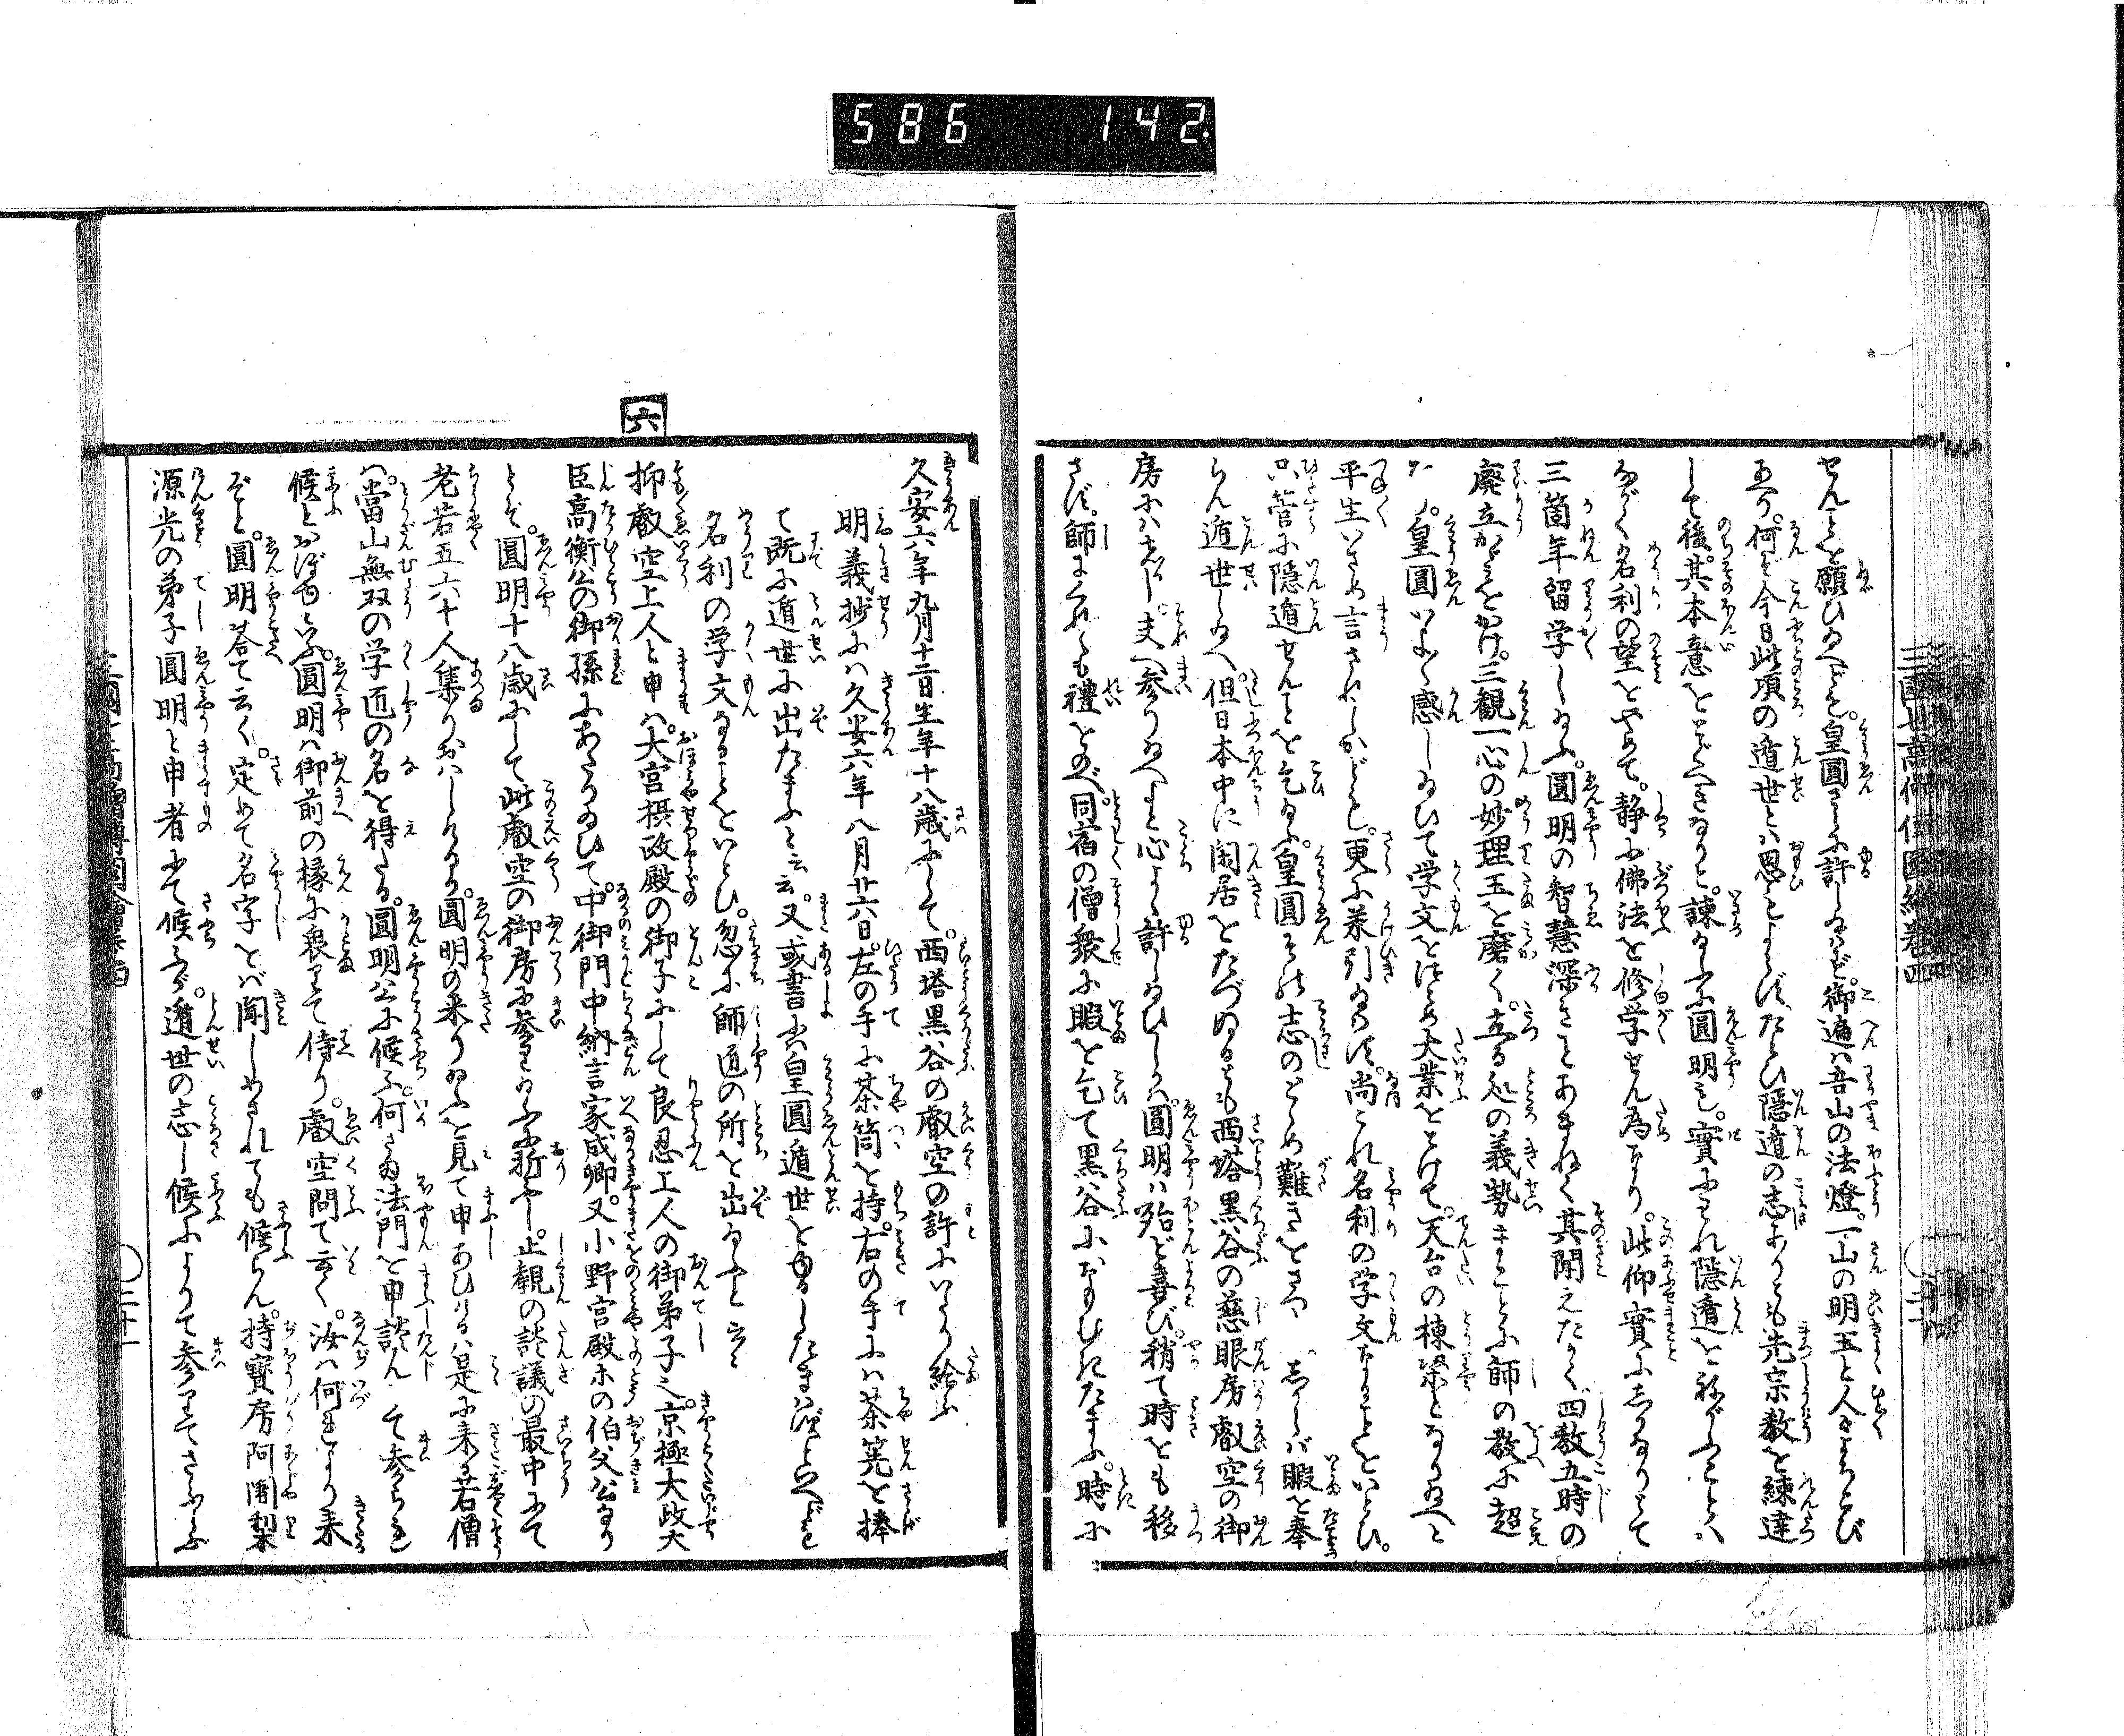 586 142.
せんことを願ひ給へども。皇圓さらに許し給はず。御邊は吾山の法燈。一山の明玉と人もよろこび
給ふ。何ぞ今日此頃の遁世とは思ひもよらず。たとひ隠遁の志ありとも先宗教を練達
して後。其本意をとぐべきなりと。諌給ふ圓明も。實にわれ隠遁をねがふことは
ながく名利の望をやめて。静に佛法を修学せん為なり。此仰實にしかるなりとて
三箇年留学し給ふ。圓明の智慧深きことあまねく其聞えたかく四教五時の
廃立かゞみをかけ。三観一心の妙理玉を磨く。立る処の義勢まことに師の教に超
たり。皇圓いよ〱感じ給ひて学文をつとめ大業をとげて。天台の棟梁となり給へと
平生いさめ言されしかども。更に承引給はず。尚これ名利の学文なることをいとひ。
只菅に隠遁せんことを乞給ふ。皇圓その志のとゞめ難きをさつし しからば暇を奉
らん遁世し給へ。但日本中に閑居をたづぬるとも西塔黒谷の慈眼房叡空の御
房にはしかじ。夫へ参り給へと心よく許し給ひしかば。圓明は殆ど喜び。稍て時をも移
さず。師にわかれも禮をのべ。同宿の僧衆に暇を乞て黒谷におもむきたまふ。時に
久安六年九月十二日生年十八歳にして。西塔黒谷の叡空の許にいたり給ふ
明義抄には久安六年八月廿六日。左の手に茶筒を持。右の手には茶筅を捧
て既に遁世に出たまふと云云。又或書に皇圓遁世をゆるしたまはずといへども
名利の学文なることをいとひ。忽に師匠の所を出給ふと云云
六
抑叡空上人と申は。大宮摂政殿の御子にして良忍上人の御弟子也。京極大政大
臣高衡公の御孫にあたり給ひて。中御門中納言家成卿。又小野宮殿等の伯父公なり
とぞ。圓明十八歳にして此叡空の御房に参り給ふ折ふし。止観の談議の最中にて
老若五六十人集りおはしける。圓明の来り給ふを見て申あひけるは是に来る若僧
は。當山無双の学匠の名を得たる。圓明公に候ふ。何たる法門を申談んとて参られ
候とおぼゆるといふ。圓明は御前の椽に畏て侍り。叡空問て云く。汝は何れより来
ぞと。圓明荅て云く。定めて名字をば聞しめされても候らん。持寳房阿闍梨
源光の弟子圓明と申者にて候ふが。遁世の志し候ふによりて参りてさふらふ